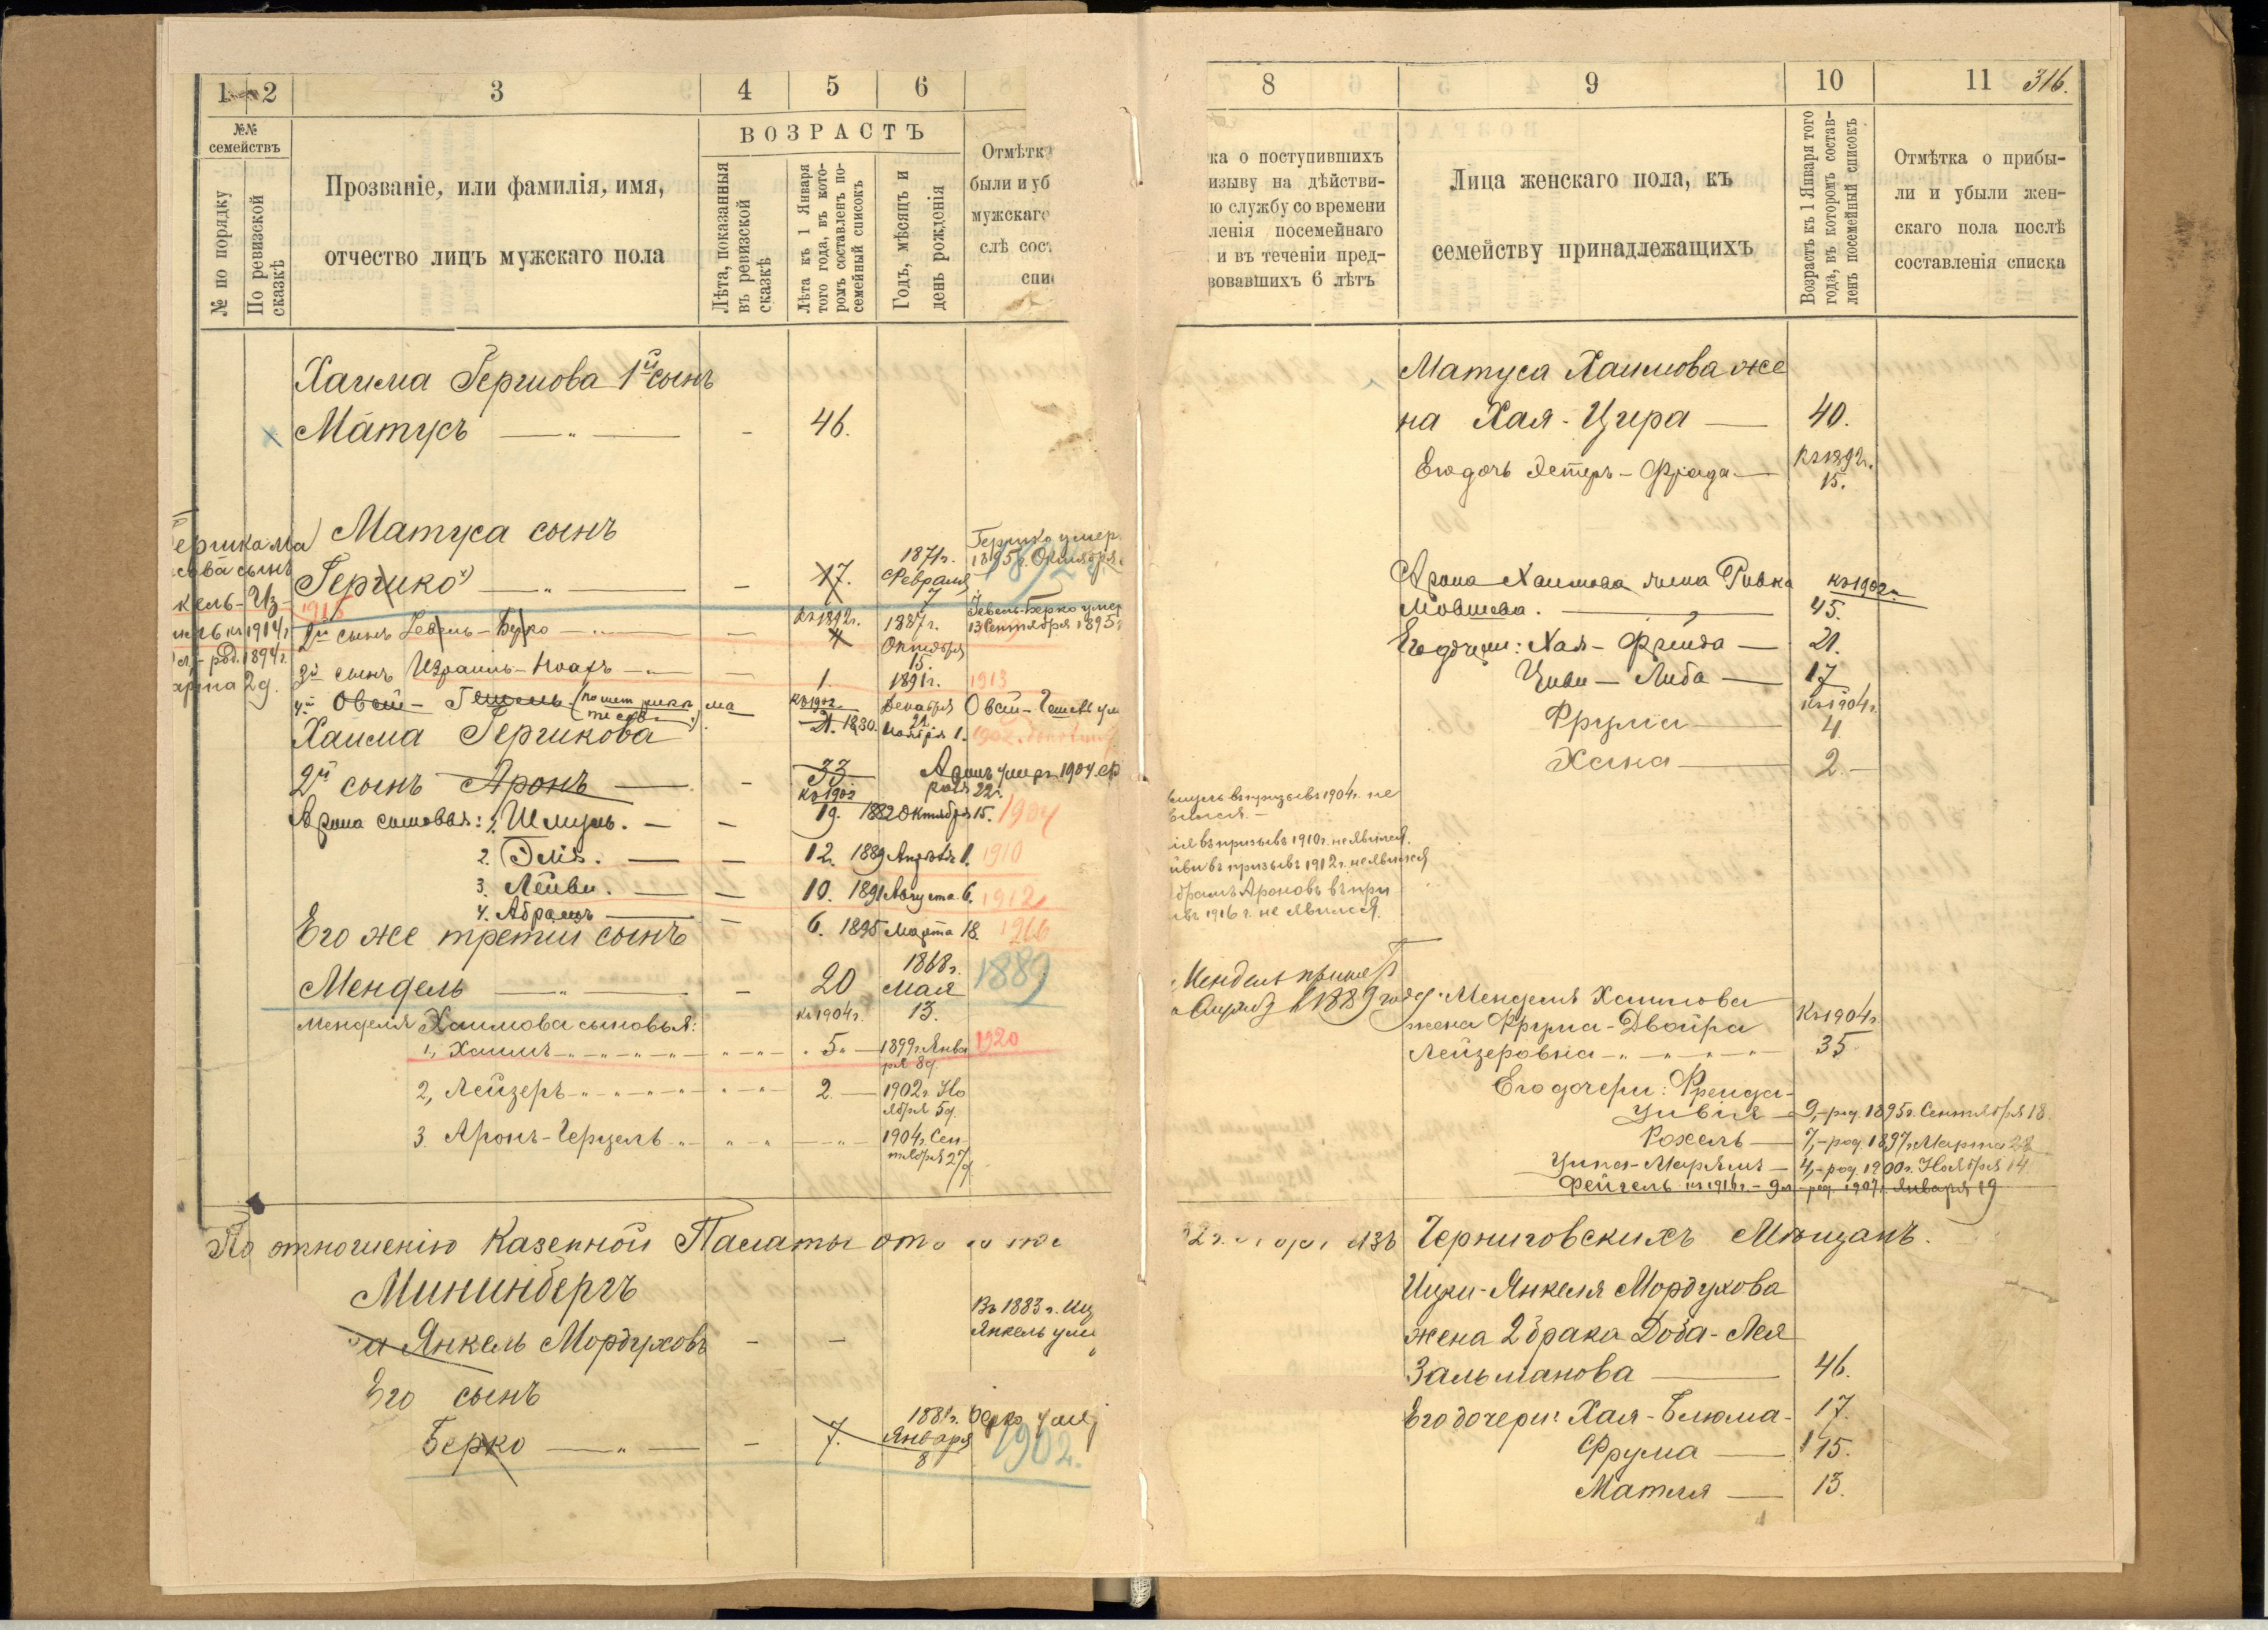 1 2 3 4 5 6 8
№№ семействъ
№ по порядку
По ревизской сказкѣ
Прозваніе, или фамилія, имя,
отчество лицъ мужскаго пола
ВОЗРАСТЪ
Лѣта, показанныя въ ревизской сказкѣ
Лѣта къ 1 Января того года, въ кото-ромъ составленъ по-семейный списокъ
Годъ, мѣсяцъ и день рожденія
Отмѣтка
были и уб
мужскаго
слѣ сост
спи
Хаима Гершова 1й сынъ
Матусъ — „ — - 46.
Матуса сынъ
Гершко — „ — - 17. 1871г. Февраля 7
Гершко умер
1895г. Октября
1892
1915
2й сынъ Зевель-Берко — - Къ 1892г. 4 1887г. Октября 15.
Зевель-Берко умер
13 Сентября 1895
3й сынъ Израиль-Ноахъ — 1. 1891г. 1913
Декабря 22.
4й Овсей-
Къ 1902
Ноября 1.
кель-Из
къ 1914г
род. 1894г.
арта 2д.
Хаима Гершкова
2й сынъ Аронъ — - 33
Аронъ умеръ 1904. Фе
раля 22.
Арона сыновья: 1. Шмуль. — - къ 1902 19. 1882 Октября 15. 1904
2. Эля. — - 12. 1889 Апрѣля 1. 1910
3. Лейви. — - 10. 1891 Августа 6. 1912
4. Абрамъ — - 6. 1895 Марта 18. 1916
Его же третій сынъ
Мендель — „ — - 20 1868г. Мая 13. 1889
Менделя Хаимова сыновья: Къ 1904г.
1, Хаимъ - „ - „ - 5 „ — 1899г. Янва
ря 8д. 1920
2, Лейзеръ - „ - „ - 2. — 1902г. Но
ября 5д.
3 Аронъ-Герцель - „ - „ - 1904г. Сен
тября 27д
По отношенію Казенной Палаты от
Мининбергъ
Янкель Мордуховъ - -
Въ 1883г. Иц
Янкель уме
Его сынъ
Берко — „ — - 7. 1881г. Января 8
Берко умер
1902.
8 9 10 11 316.
ка о поступившихъ
изыву на дѣйстви-
ю службу со времени
ленія посемейнаго
и въ теченіи пред-
вовавшихъ 6 лѣтъ
Лица женскаго пола, къ
семейству принадлежащихъ
Возрастъ къ 1 Января того года, въ которомъ состав-ленъ посемейный списокъ
Отмѣтка о прибы-
ли и убыли жен-
скаго пола послѣ
составленія списка
Матуса Хаимова же
на Хая-Цира — 40.
Его дочь Эстеръ-Фрада — Къ 1892г. 15.
Арона Хаимова жена Ривка къ 1902г.
Мовшева. — 45.
Его дочери: Хая-Фрейда — 21.
Циви-Либа — 17
Къ 1904г.
Фрума — 4.
Хана — 2.—
муль въ призывъ 1904г. не
вился.—
ля въ призывъ 1910г. не явился.
йви въ призывъ 1912г. не явился
брамъ Ароновъ въ при
ывъ 1916г. не явился.
Мендель принятъ
1889 года
Менделя Хаимова
жена Фрума-Двойра Къ 1904г.
Лейзеровна - „ - „ - 35
Его дочери: Фрейда-
Цивія — 9,-род. 1895г. Сентября 18.
Рохель — 7,-род. 1897г. Марта 28
Ципа-Марьямъ — 4,-род. 1900г. Ноября 14
Фейгель къ 1916г.- 9 л.-род. 1907г. Января 19
изъ Черниговскихъ Мѣщанъ.
Ицки-Янкеля Мордухова
жена 2 брака Доба-Лея
Зальманова — 46.
Его дочери: Хая-Блюма- 17.
Фрума — 15.
Матля — 13.